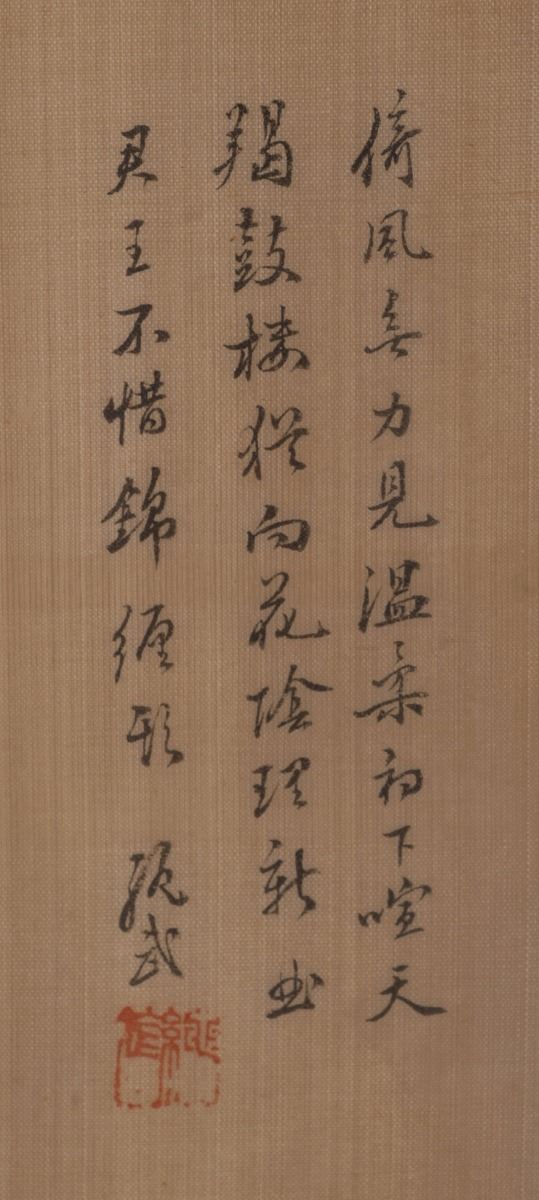 倚風無力見温柔初下喧天
羯鼓楼猶向花陰理新曲
君王不惜錦纏頭 祝武